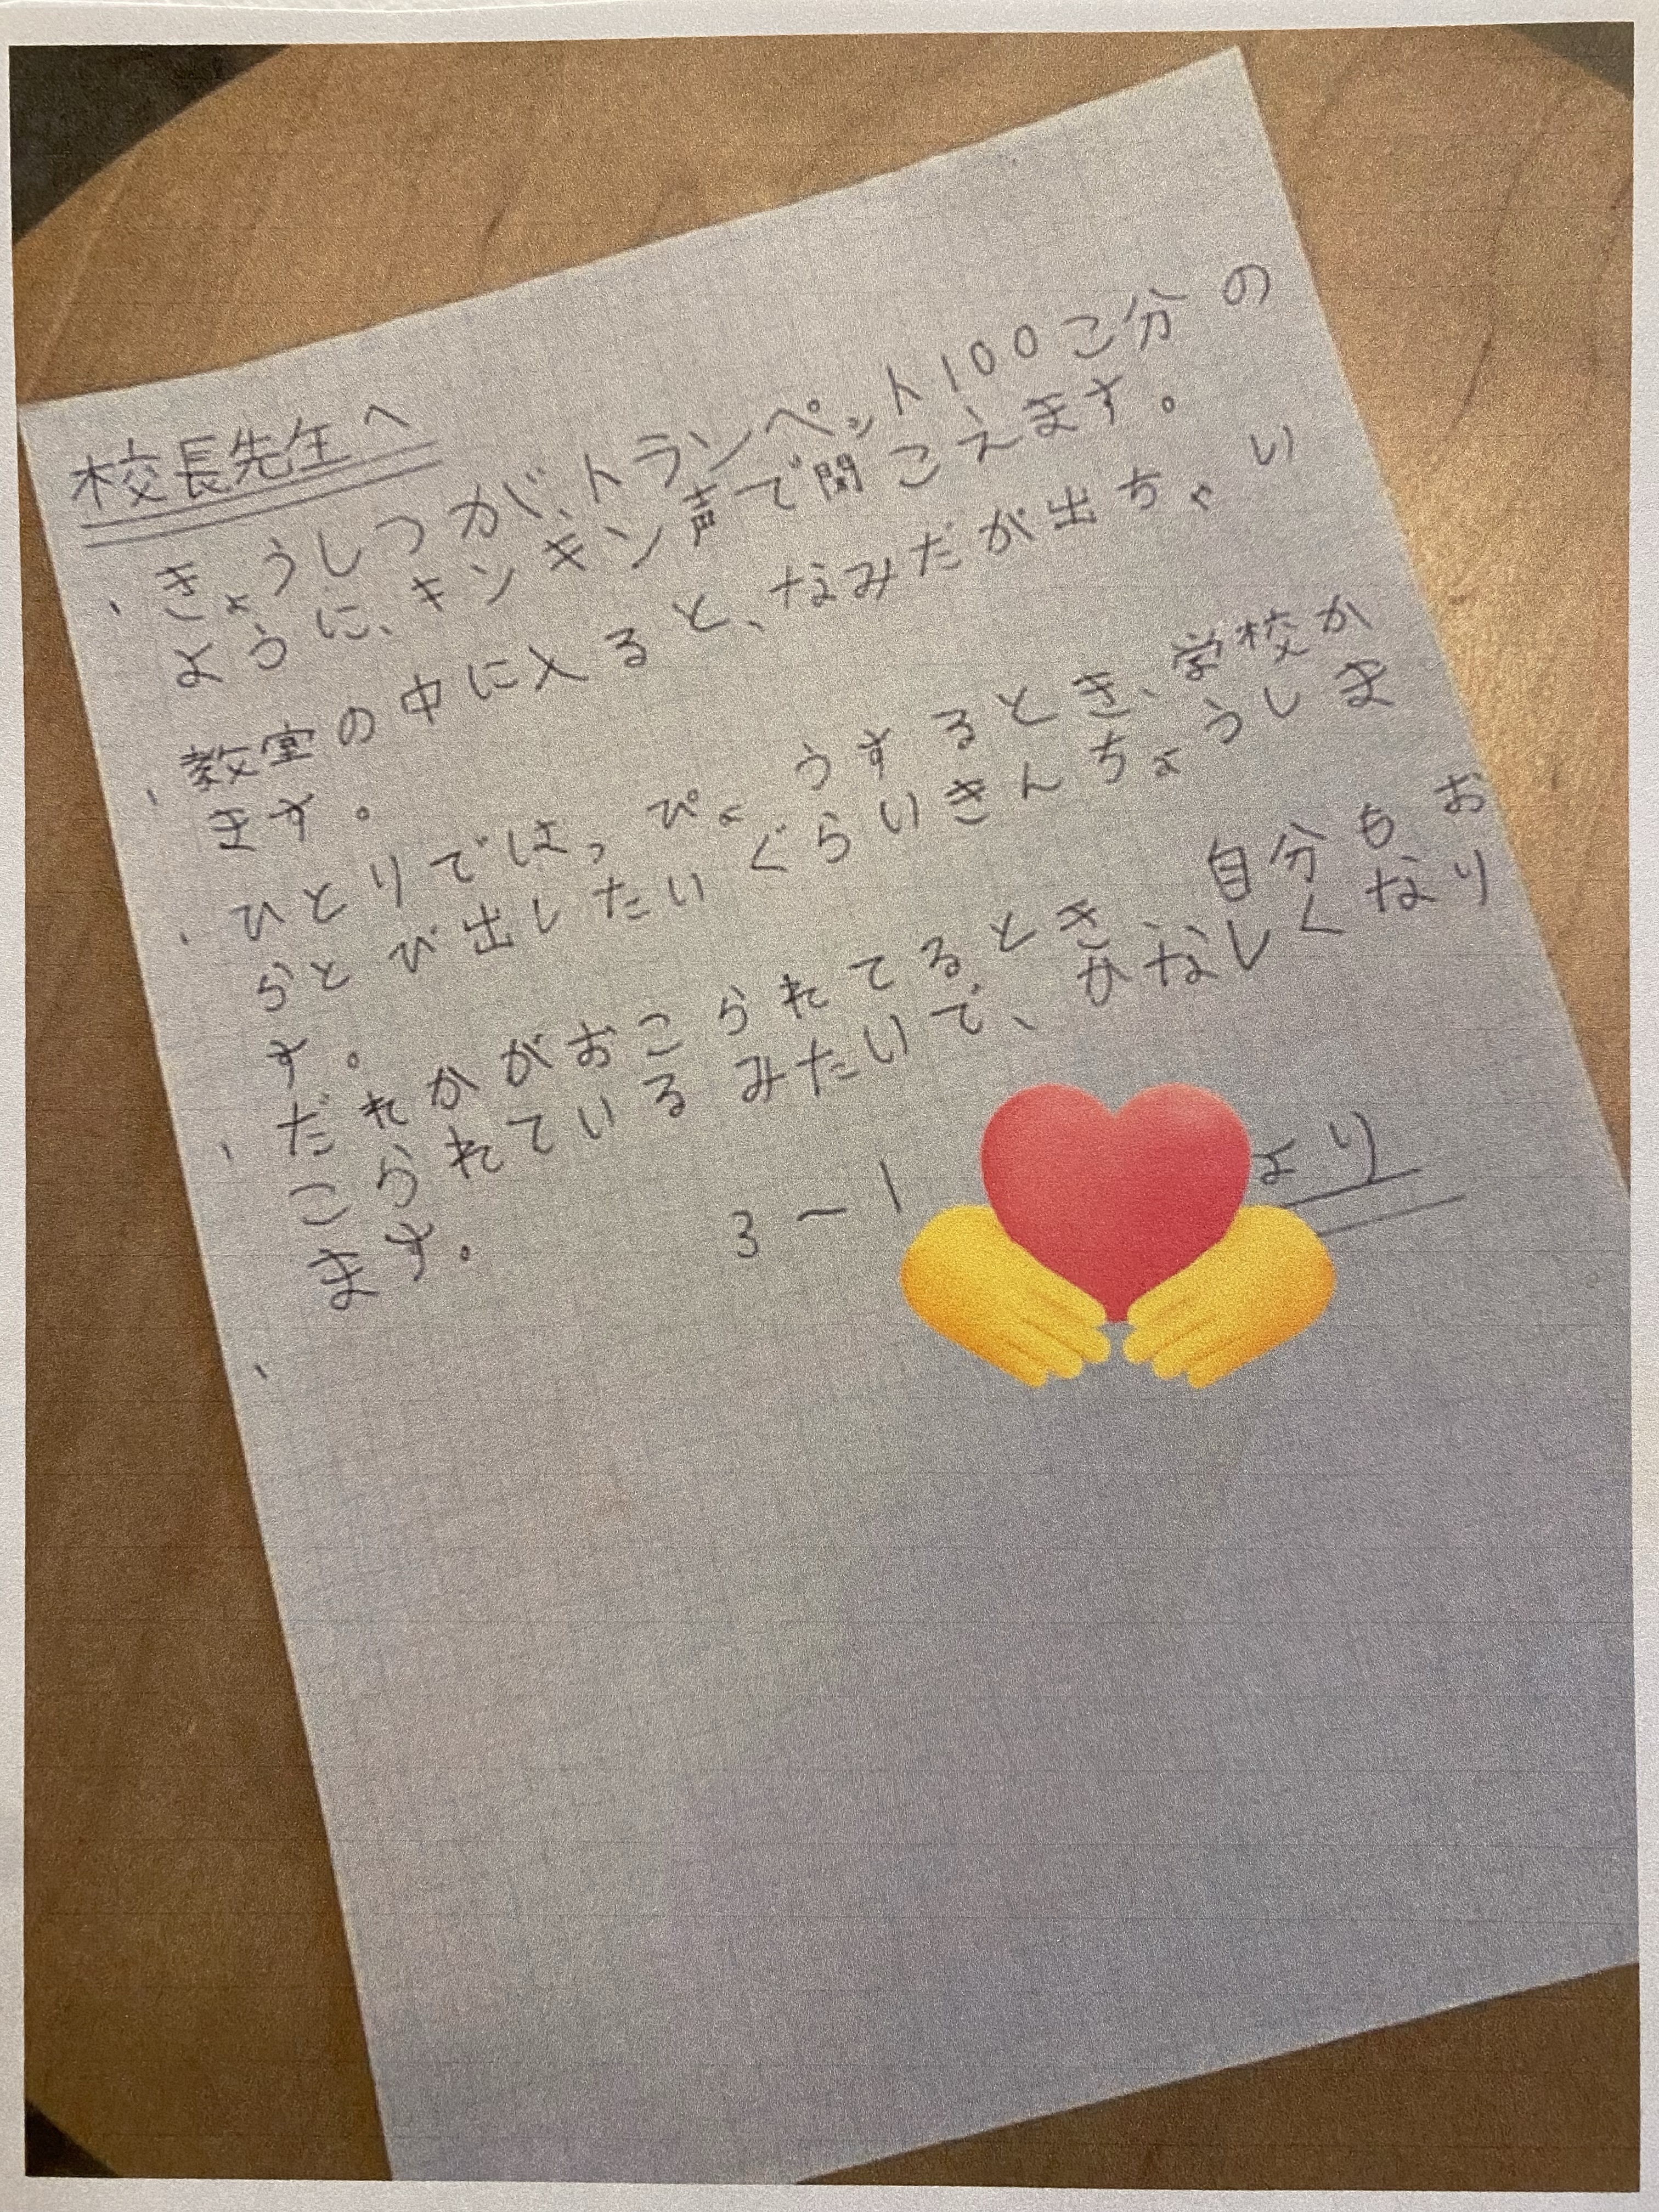 校長先生へ
、きょうしつが、トランペット100こ分の
ように、キンキン声で聞こえます。
、教室の中に入ると、なみだが出ちゃい
ます。
、ひとりではっぴょうするとき、学校か
らとび出したいぐらいきんちょうしま
す。
、だれかがおこられてるとき、自分もお
こられているみたいで、かなしくなり
ます。
、
3-1 より